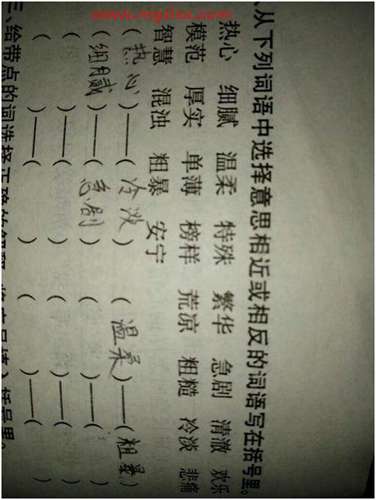 、从下列词语中选择意思相近或相反的词语写在括号里。
热心 细腻 温柔 特殊 繁华 急剧 清澈 欢乐
模范 厚实 单薄 榜样 荒凉 粗糙 冷淡 悲痛
智慧 混浊 粗暴 安宁
(热心)——(冷淡) (温柔)——(粗暴)
(细腻)——(急剧) ( )——( )
( )——( ) ( )——( )
( )——( ) ( )——( )
三、给带点的词选择正确的 括号里。